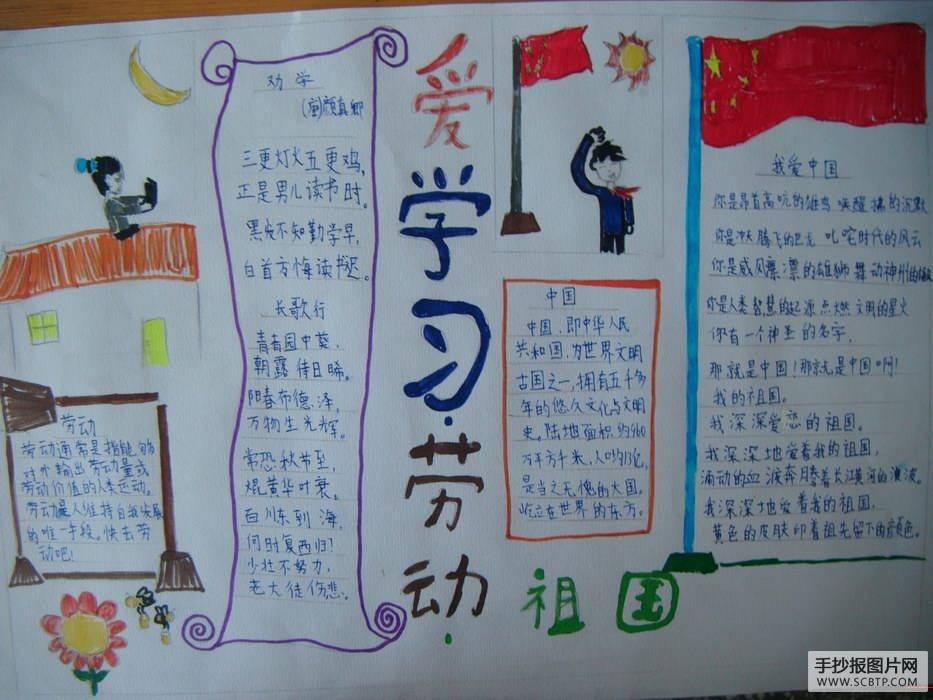 劳动
劳动通常是指能够
对外输出劳动量或
劳动价值的人类运动。
劳动是人维持自我发展
的唯一手段。快去劳
动吧!
劝学
(唐)颜真卿
三更灯火五更鸡,
正是男儿读书时。
黑发不知勤学早,
白首方悔读书迟。
长歌行
青青园中葵,
朝露待日晞。
阳春布德泽,
万物生光辉。
常恐秋节至,
焜黄华叶衰。
百川东到海,
何时复西归!
少壮不努力,
老大徒伤悲。
爱学习·劳动·祖国
中国
中国,即中华人民
共和国,为世界文明
古国之一,拥有五千多
年的悠久文化与文明
史。陆地面积约960
万平方千米,人口约13亿,
是当之无愧的大国。
屹立在世界的东方。
我爱中国
你是昂首高吭的雄鸡 唤醒 的沉默
你是冲天腾飞的巨龙 叱咤时代的风云
你是威风凛凛的雄狮 舞动神州的
你是人类智慧的起源 点燃文明的星火
你有一个神圣的名字,
那就是中国!那就是中国啊!
我的祖国。
我深深爱恋的祖国。
我深深地爱着我的祖国,
涌动的血液奔腾着长江黄河的澳波。
我深深地爱着我的祖国,
黄色的皮肤印着祖先留下的颜色。
手抄报图片网
WWW.SCBTP.COM